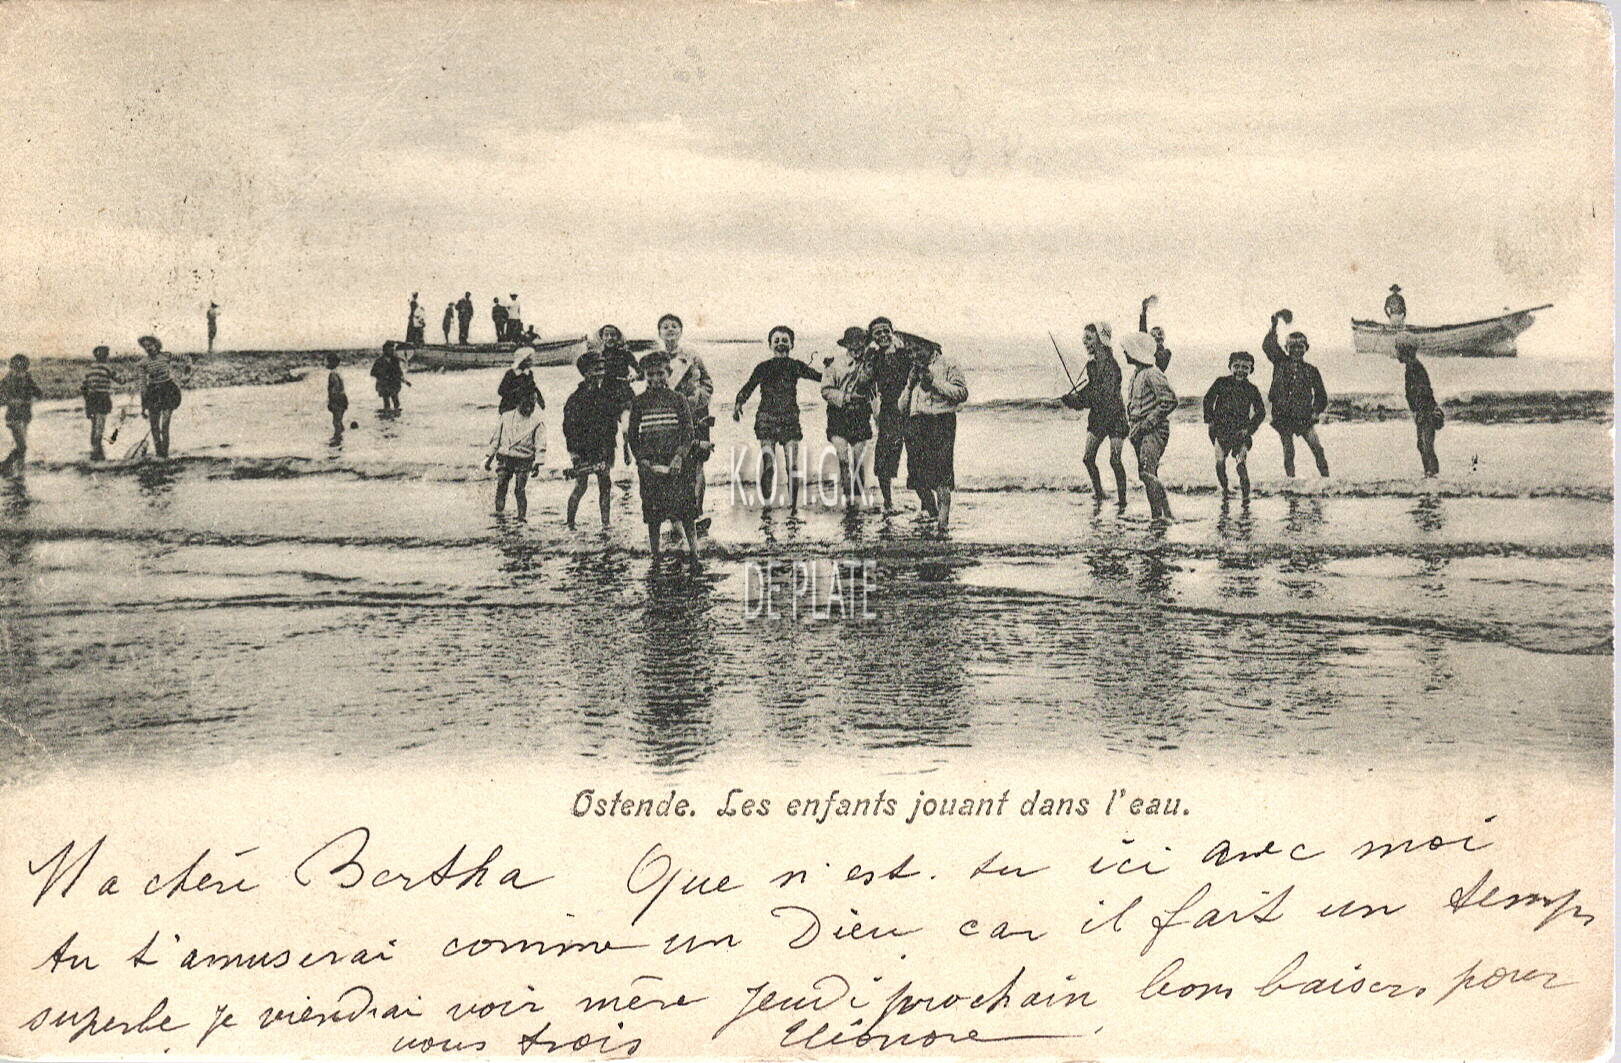 K.O.H.G.K.
DE PLATE
Ostende. Les enfants jouant dans l'eau.
Ma chéri Bertha Que n'est. tu ici avec moi
tu t'amuserai comme un Dieu car il fait un temps
superbe je viendrai voir mère jeudi prochain bons baisers pour
vous trois Eléonore